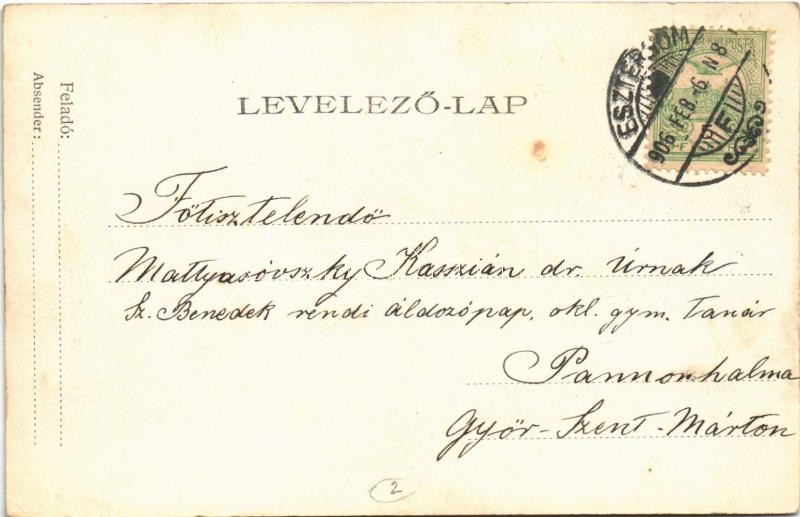 LEVELEZŐ-LAP
Feladó:
Absender:
ESZTERGOM
906 FEB. 6. N 8
F
Főtisztelendő
Mattyasóvszky Kasszián dr. Úrnak
Sz. Benedek rendi áldozópap, okl. gym. Tanár
Pannonhalma
Győr-Szent-Márton
2